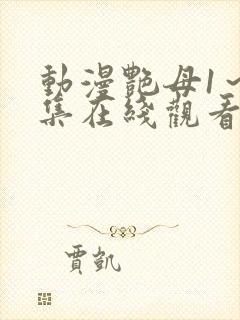 動漫艷母1~
集在綫觀看
賈凱